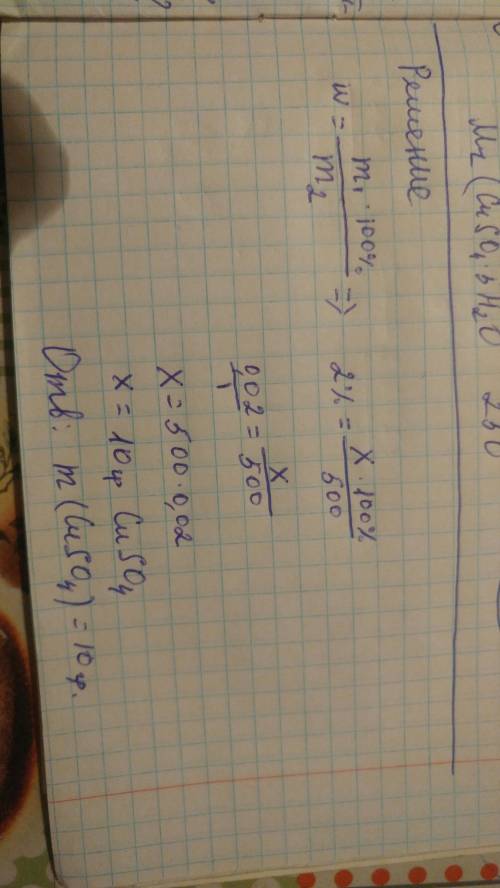 Mr (CuSO₄·5H₂O 250
Решение
w = m₁·100% / m₂ => 2% = x·100% / 500
0,02 = x / 500
X = 500·0,02
X = 10 г CuSO₄
Отв: m (CuSO₄) = 10 г.